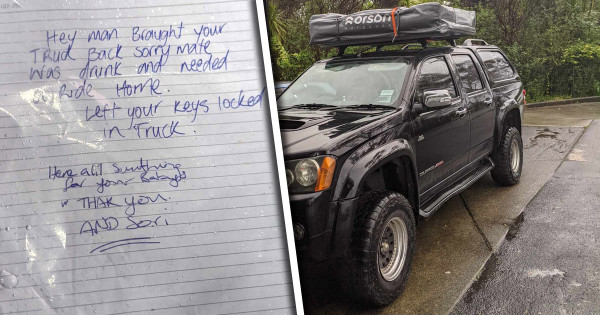 Hey man Braught your
Truck Back sorry mate
Was drunk and needed
a Ride Home.
Left your keys locked
in Truck.
Here a lil Sumthing
for your
THAK you.
AND Sori.
orson